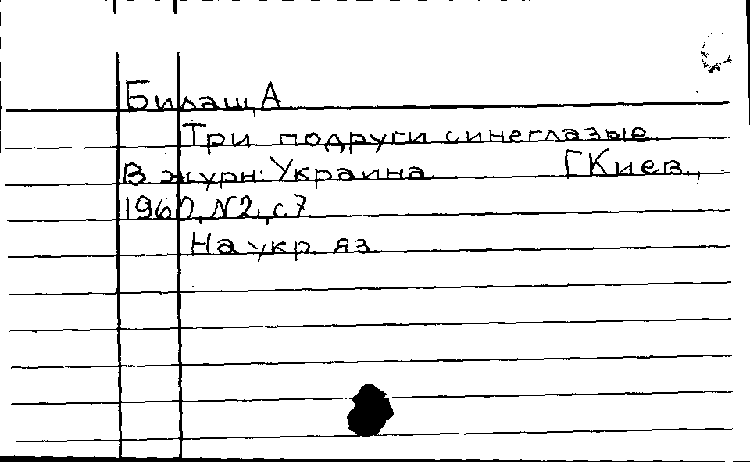 Билащ, А
Три подруги синеглазые
В журн: Украина [Киев,
1960, N2, с.7
На укр. яз.